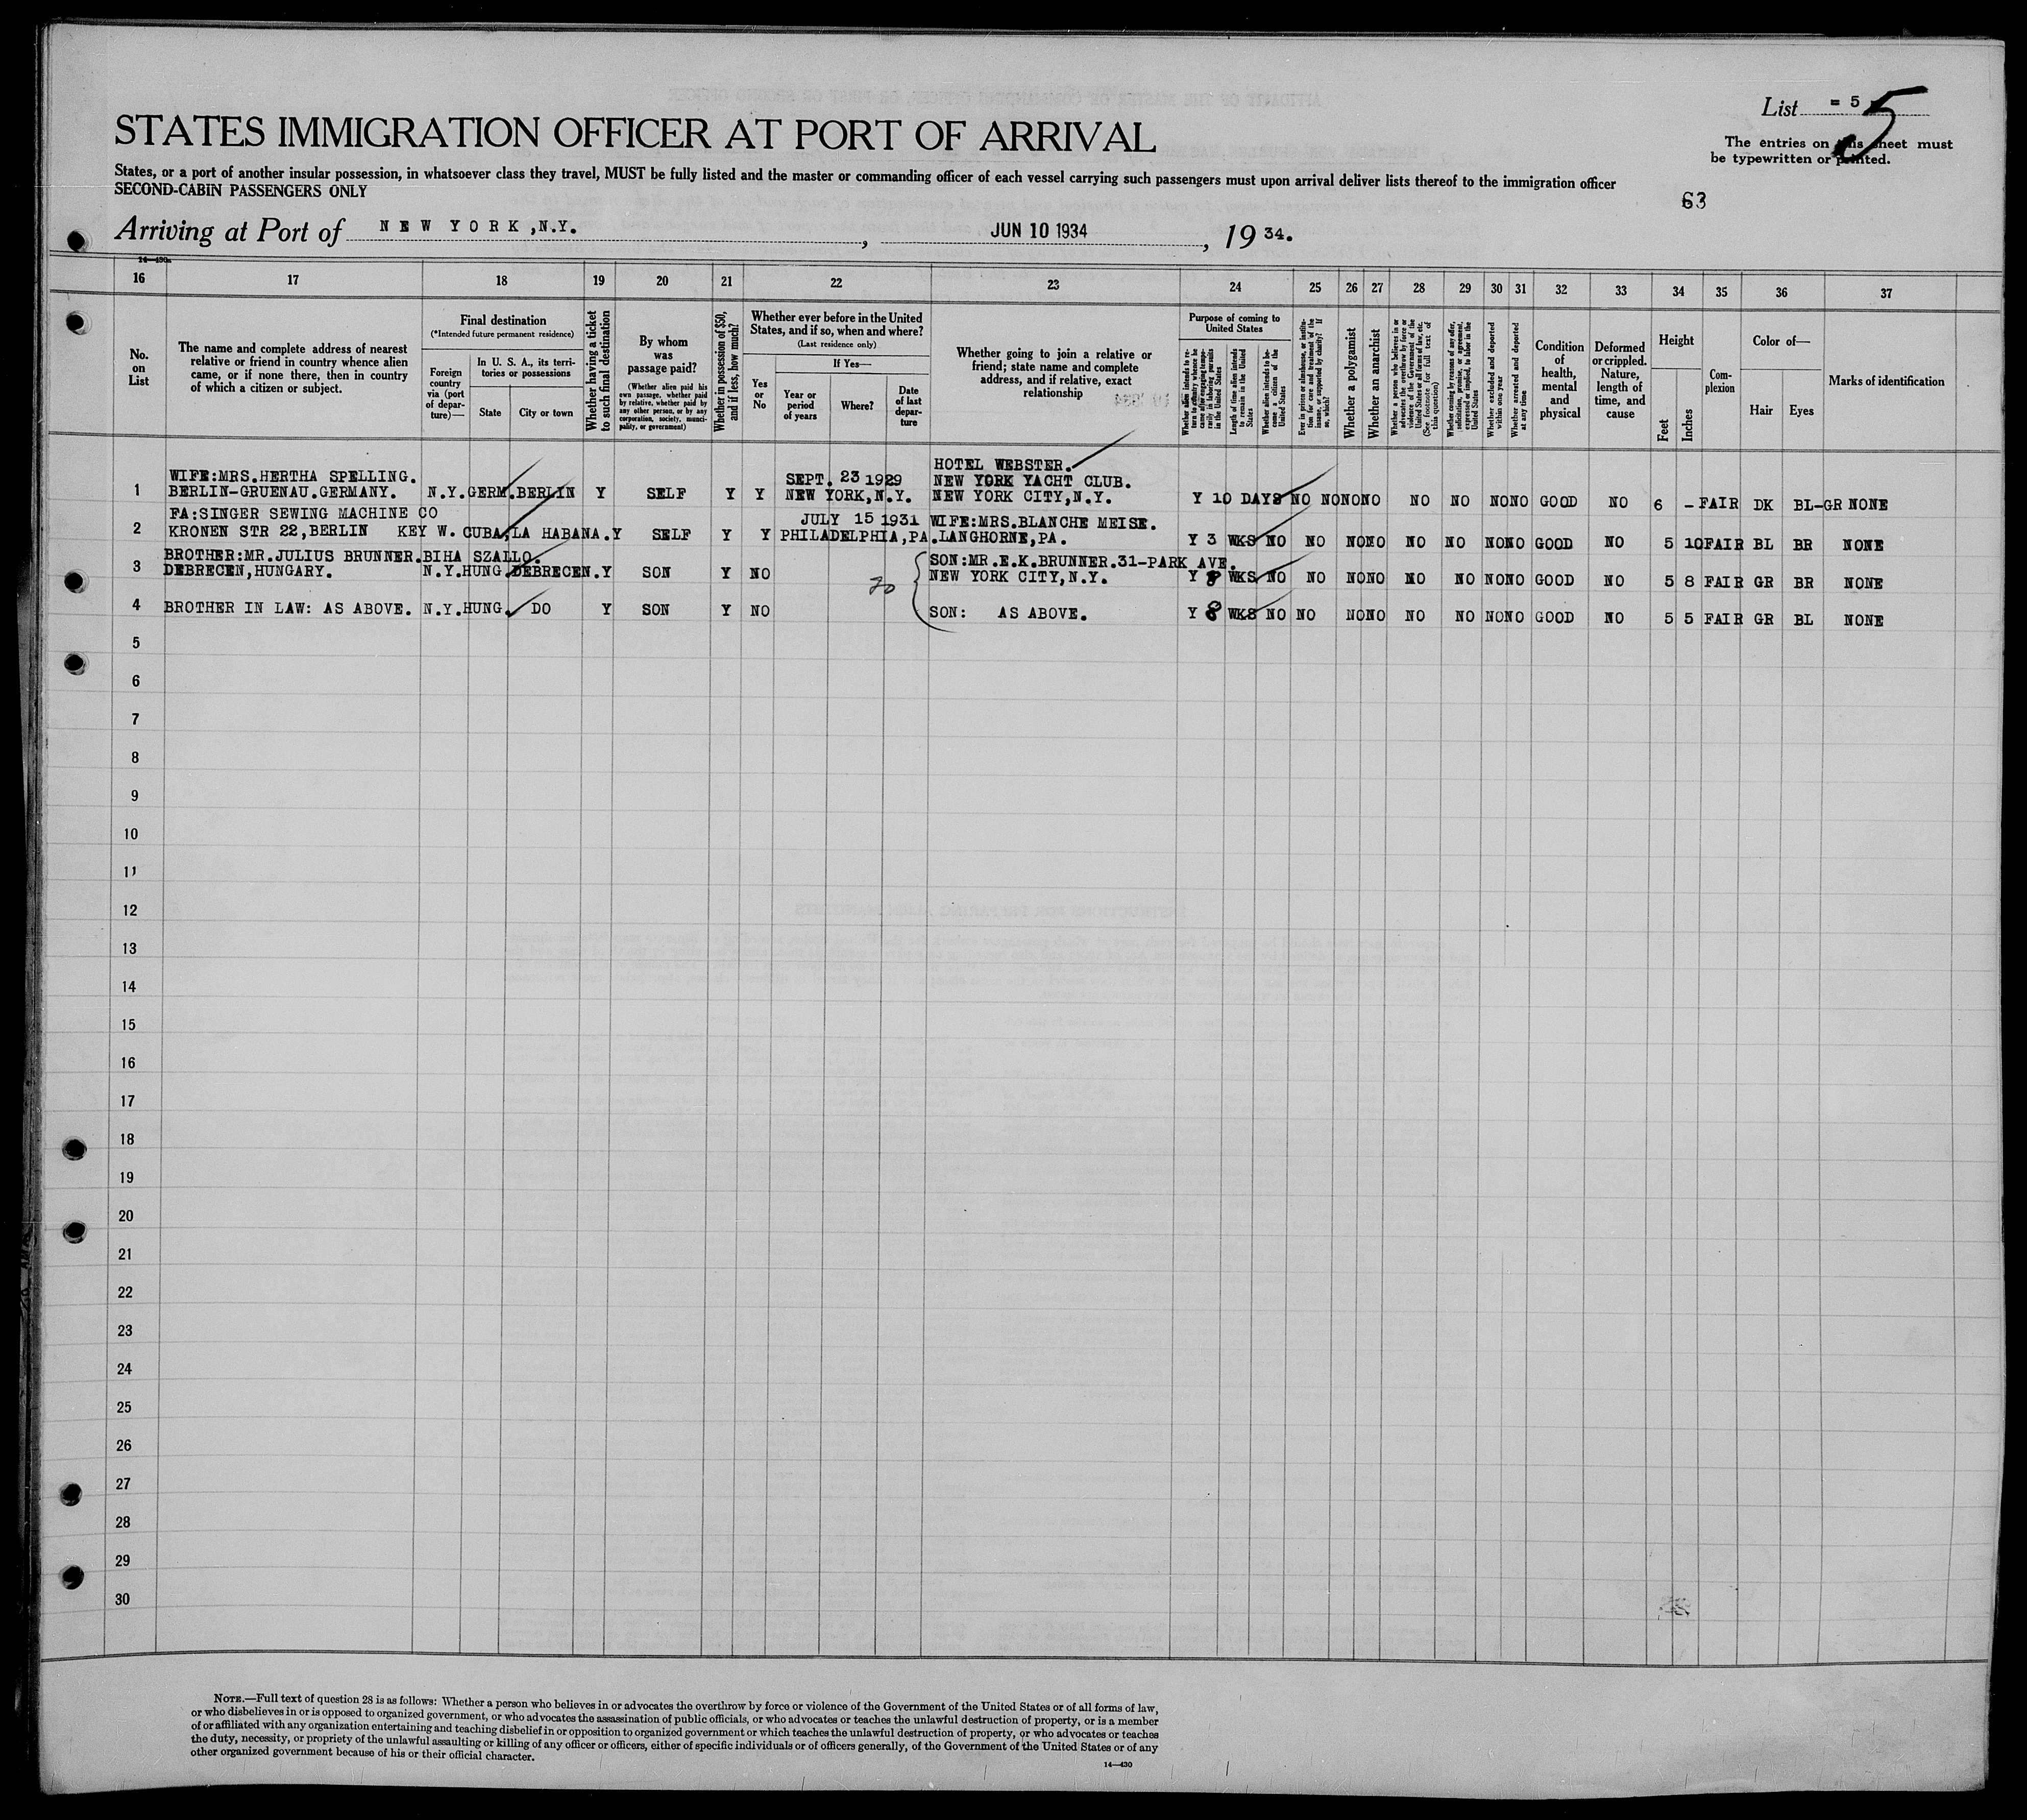 List = 5
5
STATES IMMIGRATION OFFICER AT PORT OF ARRIVAL
The entries on this sheet must
be typewritten or printed.
States, or a port of another insular possession, in whatsoever class they travel, MUST be fully listed and the master or commanding officer of each vessel carrying such passengers must upon arrival deliver lists thereof to the immigration officer
SECOND-CABIN PASSENGERS ONLY
63
Arriving at Port of NEW YORK,N.Y. , JUN 10 1934 , 1934.
14—430a
16 17 18 19 20 21 22 23 24 25 26 27 28 29 30 31 32 33 34 35 36 37
No. on List
The name and complete address of nearest relative or friend in country whence alien came, or if none there, then in country of which a citizen or subject.
Final destination
(*Intended future permanent residence)
Foreign country via (port of departure)—
In U. S. A., its territories or possessions
State
City or town
Whether having a ticket to such final destination
By whom was passage paid?
(Whether alien paid his own passage, whether paid by relative, whether paid by any other person, or by any corporation, society, municipality, or government)
Whether in possession of $50, and if less, how much?
Whether ever before in the United States, and if so, when and where?
(Last residence only)
Yes or No
If Yes—
Year or period of years
Where?
Date of last departure
Whether going to join a relative or friend; state name and complete address, and if relative, exact relationship
Purpose of coming to United States
Whether alien intends to return to country whence he came after engaging temporarily in laboring pursuits in the United States
Length of time alien intends to remain in the United States
Whether alien intends to become a citizen of the United States
Ever in prison or almshouse, or institution for care and treatment of the insane, or supported by charity? If so, which?
Whether a polygamist
Whether an anarchist
Whether a person who believes in or advocates the overthrow by force or violence of the Government of the United States or all forms of law, etc. (See footnote for full text of this question)
Whether coming by reasons of any offer, solicitation, promise, or agreement, expressed or implied, to labor in the United States
Whether excluded and deported within one year
Whether arrested and deported at any time
Condition of health, mental and physical
Deformed or crippled. Nature, length of time, and cause
Height
Feet
Inches
Complexion
Color of—
Hair
Eyes
Marks of identification
WIFE:MRS.HERTHA SPELLING. SEPT. 23 1929 HOTEL WEBSTER.
NEW YORK YACHT CLUB.
1 BERLIN-GRUENAU.GERMANY. N.Y. GERM. BERLIN Y SELF Y Y NEW YORK,N.Y. NEW YORK CITY,N.Y. Y 10 DAYS NO NO NO NO NO NO NO NO GOOD NO 6 - FAIR DK BL-GR NONE
FA:SINGER SEWING MACHINE CO JULY 15 1931 WIFE:MRS.BLANCHE MEISE.
2 KRONEN STR 22,BERLIN KEY W. CUBA,LA HABANA. Y SELF Y Y PHILADELPHIA,PA. LANGHORNE,PA. Y 3 WKS NO NO NO NO NO NO NO NO GOOD NO 5 10 FAIR BL BR NONE
BROTHER:MR.JULIUS BRUNNER.BIHA SZALLO. SON:MR.E.K.BRUNNER.31-PARK AVE.
3 DEBRECEN,HUNGARY. N.Y. HUNG. DEBRECEN. Y SON Y NO NEW YORK CITY,N.Y. Y 8 WKS NO NO NO NO NO NO NO NO GOOD NO 5 8 FAIR GR BR NONE
4 BROTHER IN LAW: AS ABOVE. N.Y. HUNG. DO Y SON Y NO SON: AS ABOVE. Y 8 WKS NO NO NO NO NO NO NO NO GOOD NO 5 5 FAIR GR BL NONE
5
6
7
8
9
10
11
12
13
14
15
16
17
18
19
20
21
22
23
24
25
26
27
28
29
30
NOTE.—Full text of question 28 is as follows: Whether a person who believes in or advocates the overthrow by force or violence of the Government of the United States or of all forms of law,
or who disbelieves in or is opposed to organized government, or who advocates the assassination of public officials, or who advocates or teaches the unlawful destruction of property, or is a member
of or affiliated with any organization entertaining and teaching disbelief in or opposition to organized government or which teaches the unlawful destruction of property, or who advocates or teaches
the duty, necessity, or propriety of the unlawful assaulting or killing of any officer or officers, either of specific individuals or of officers generally, of the Government of the United States or of any
other organized government because of his or their official character.
14—430